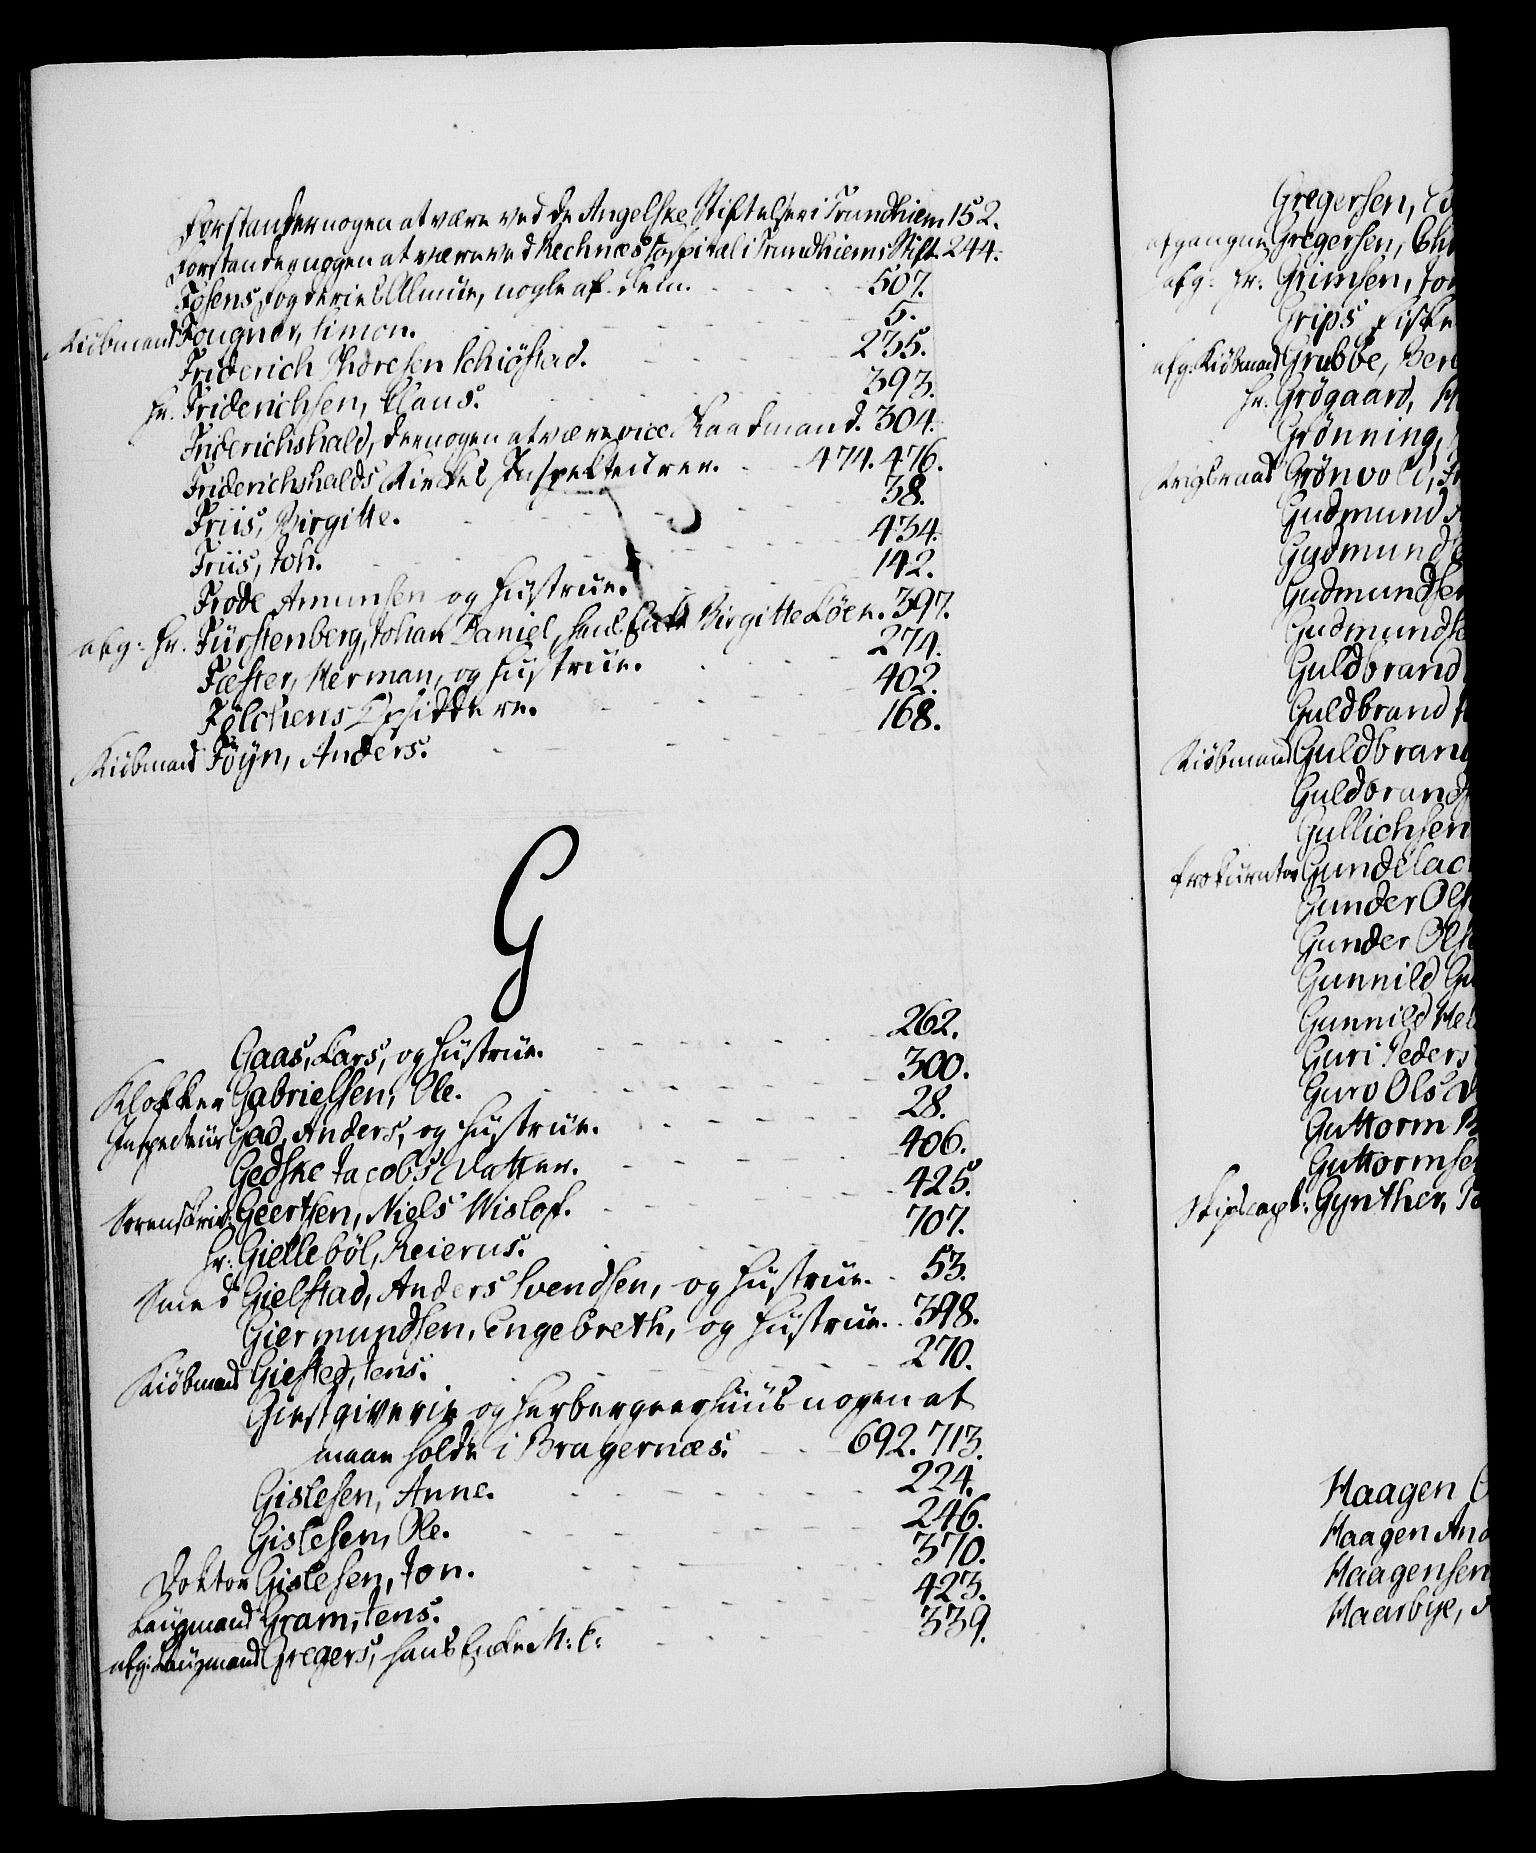 Forstander nogen at være ved de Angelske Stiftelser i Trundhiem 152.
Forstander nogen at være ved Rechnæs Hospital i Trundhiems Stift 244.
Fosens Fogderies Almue, nogle af dem. 507.
Kiöbmand Fougner, Simon. 5.
Friderich Thoresen Schiöstad. 235.
Hr. Friderichsen, Claus. 393.
Friderichshald, der nogen at være vice Raadmand. 304.
Friderichshalds Kirkes Inspekteurer. 474. 476.
Friis, Birgitte. 38.
Friis, Joh. 434.
Frode Amunsen og Hustrue. 142.
afg: Hr. Fürstenberg, Johan Daniel, hans Enke Birgitte Löen. 397.
Fæster, Herman, og Hustrue. 274.
Fölchens Opsiddere. 402.
Kiöbmand Föyn, Anders. 168.
G
Gaas, Lars, og Hustrue. 262.
Klokker Gabrielsen, Ole. 300.
Inspecteur Gad, Anders, og Hustrue. 28.
Gedske Jacobs Datter. 406.
Sorenskriv: Geertsen, Niels Wislof. 425.
Hr: Gielleböl, Reierus. 707.
Smed Gielstad, Anders Svendsen, og Hustrue. 53.
Giermundsen, Engebreth, og Hustrue. 398.
Kiöbmand Giested, Jens. 270.
Giestgiverie og Herbergeerhuus nogen at
maae holde i Bragernæs. 692. 713.
Gislesen, Anne. 224.
Gislesen, Ole. 246.
Doktor Gislesen, Jon. 370.
Laugmand Gram, Jens. 423.
afg: Laugmand Gregers, hans Enke M: C: 339.
Gregersen,
afgangne Gregersen, Chr
afg: Hr. Grimsen, Jo
Grips Fiske
afg: Kiöbmand Grubbe, Ber
Hr. Grögaard, H
Grönning,
Grönvold,
Gudmund
Gudmund
Gudmundsen
Gudmundse
Guldbrand
Guldbrand
Kiöbmand Guldbrand
Guldbrands
Gullichsen
Prokurator Gundelac
Gunder Ols
Gunder Ols
Gunnild Gu
Gunnild Hel
Guri Peders
Guro Ols D
Guttorm
Guttormse
Skipscapt: Gynther,
Haagen
Haagen And
Haagensen
Haarbye,